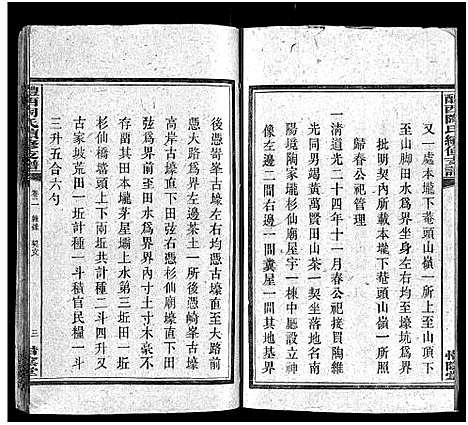 醴西陶氏續修支譜
又一處本壠下菴頭山嶺一所上至山頂下
至山脚田水為界坐身左右均至壕坑為界
批明契內所載本壠下菴頭山嶺一所陶照
歸春公祀管理
一清道光二十四年十一月春公祀接買陶維
光同男竭黃萬賢田山茶一契坐落地名南
陽境陶家壠杉仙廟屋宇一棟中廳設立神
龕左邊二間右邊一間糞屋一間其地基界
惇陰堂
後憑峝峯古壕直下左右均憑古壕直至大路前
憑大路為界左邊菜土一所後憑崎峯古壕
高岸古壕直下右憑杉仙廟壕直至大路前
弦為界前田至水為界界內寸土寸木毫不
存蓢其田本壠茅星壩上水第三坵田一坵
杉仙橋壋頭上下兩坵共計種二斗四升又
古家坡荒田一坵計種一斗積官民糧一斗
三升五合六勺
卷二 雜錄 契文
三